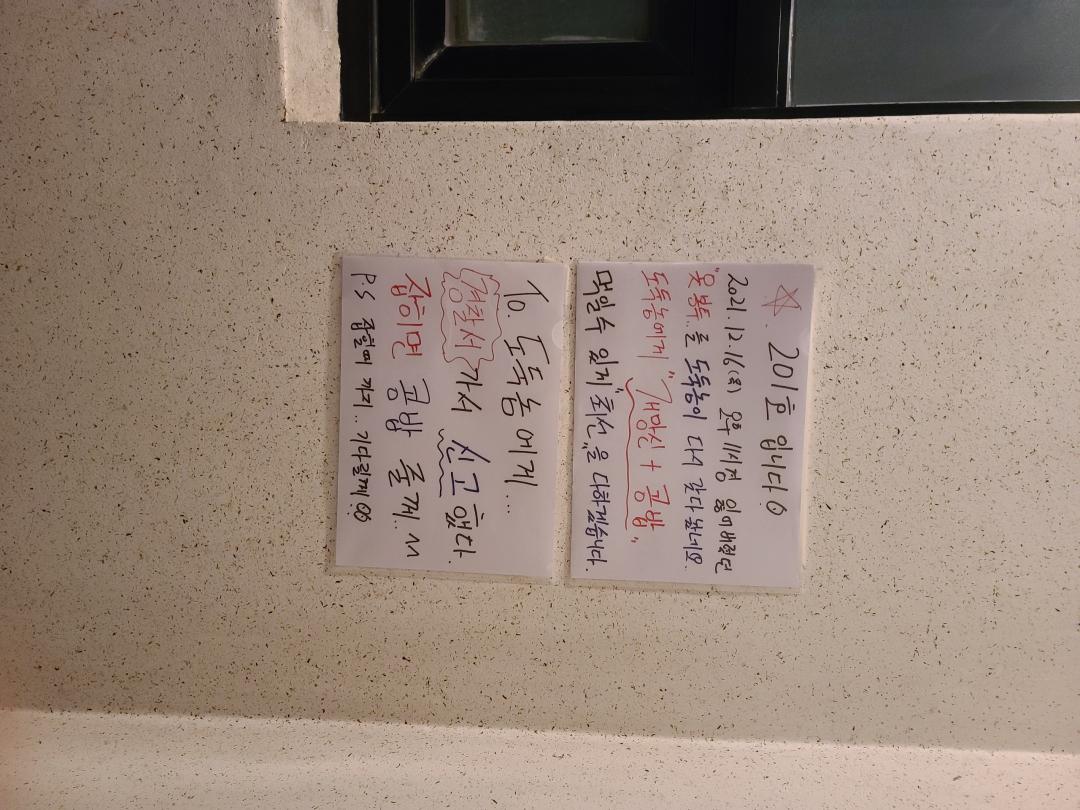 ☆. 201호 입니다 ☺
2021. 12. 16(목) 오후 11시경 잃어버렸던
"옷 봉투"를 도둑놈이 다시 갖다 놨네요.
도둑놈에게 "개망신 + 콩밥"
먹일수 있게 "최선"을 다하겠습니다.
To. 도둑놈에게...
경찰서 가서 신고했다.
잡히면 콩밥 줄께.. ^^
P.S 잡힐때 까지.. 기다릴께!